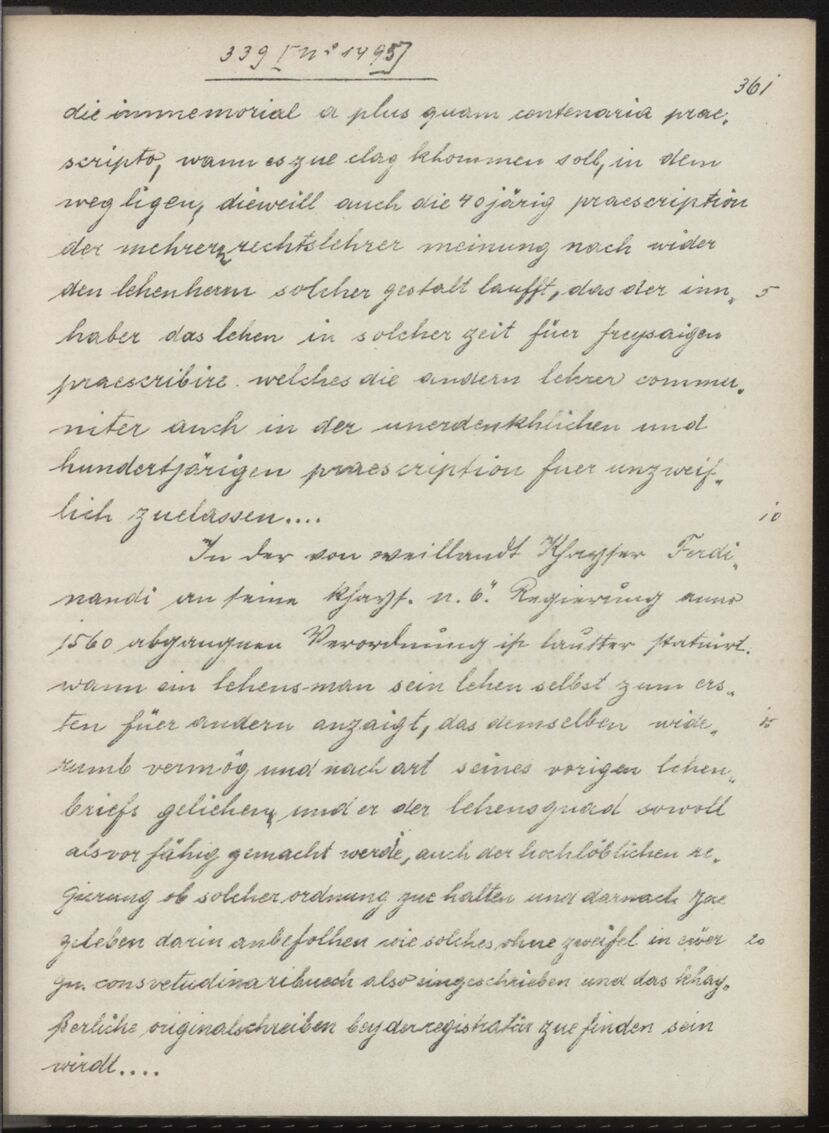 339 [N° 1495]
361
die immemorial a plus quam centenaria prae„
scripto, wann es zue clag khommen soll, in dem
weg ligen, dieweill auch die 40 järig praescription
der mehrern rechtslehrer meinung nach wider
den lehenherrn solcher gestalt laufft, das der inn„ 5
haber das lehen in solcher zeit füer freysaigen
praescribire. welches die andern lehrer commu„
niter auch in der unerdenkhlichen und
hundertjärigen praescription fuer unzweif„
lich zuelassen.... 10
In der von weillandt Khayser Ferdi„
nandi an seine khayf. n. ö. Regierung anno
1560 abgangnen Verordnung ist lautter statuirt.
wann ein lehensman sein lehen selbst zum ers„
ten füer andern anzaigt, das demselben wide„ 15
rumb vermög und nach art seines vorigen lehen„
briefs gelichen, und er der lehensgnad sowoll
als vor fähig gemacht werde, auch der hochlöblichen re„
gierung ob solcher ordnung zue halten und darnach zue
geleben darin anbefolhen wie solches ohne zweifel in euer 20
gn. consvetudinaribuech also eingeschrieben und das khay„
ßerliche originalschreiben bey der registratur zue finden sein
wirdt....